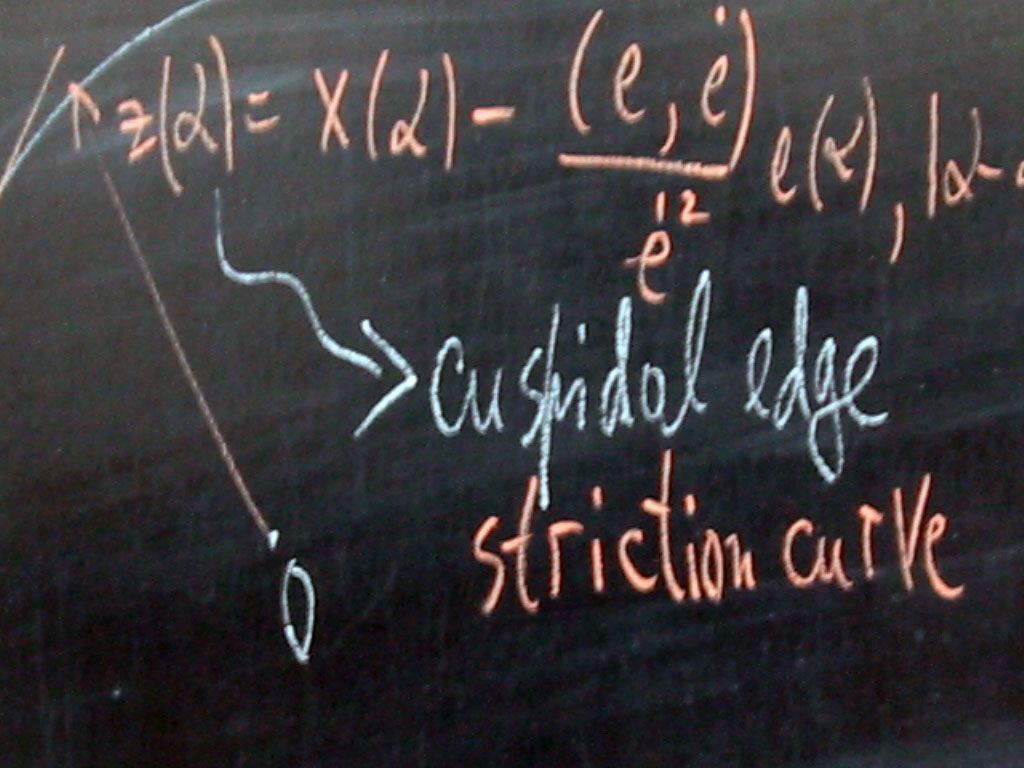 z(α) = x(α) - (e, ė) / ė² e(α), |α-
cuspidal edge
striction curve
0